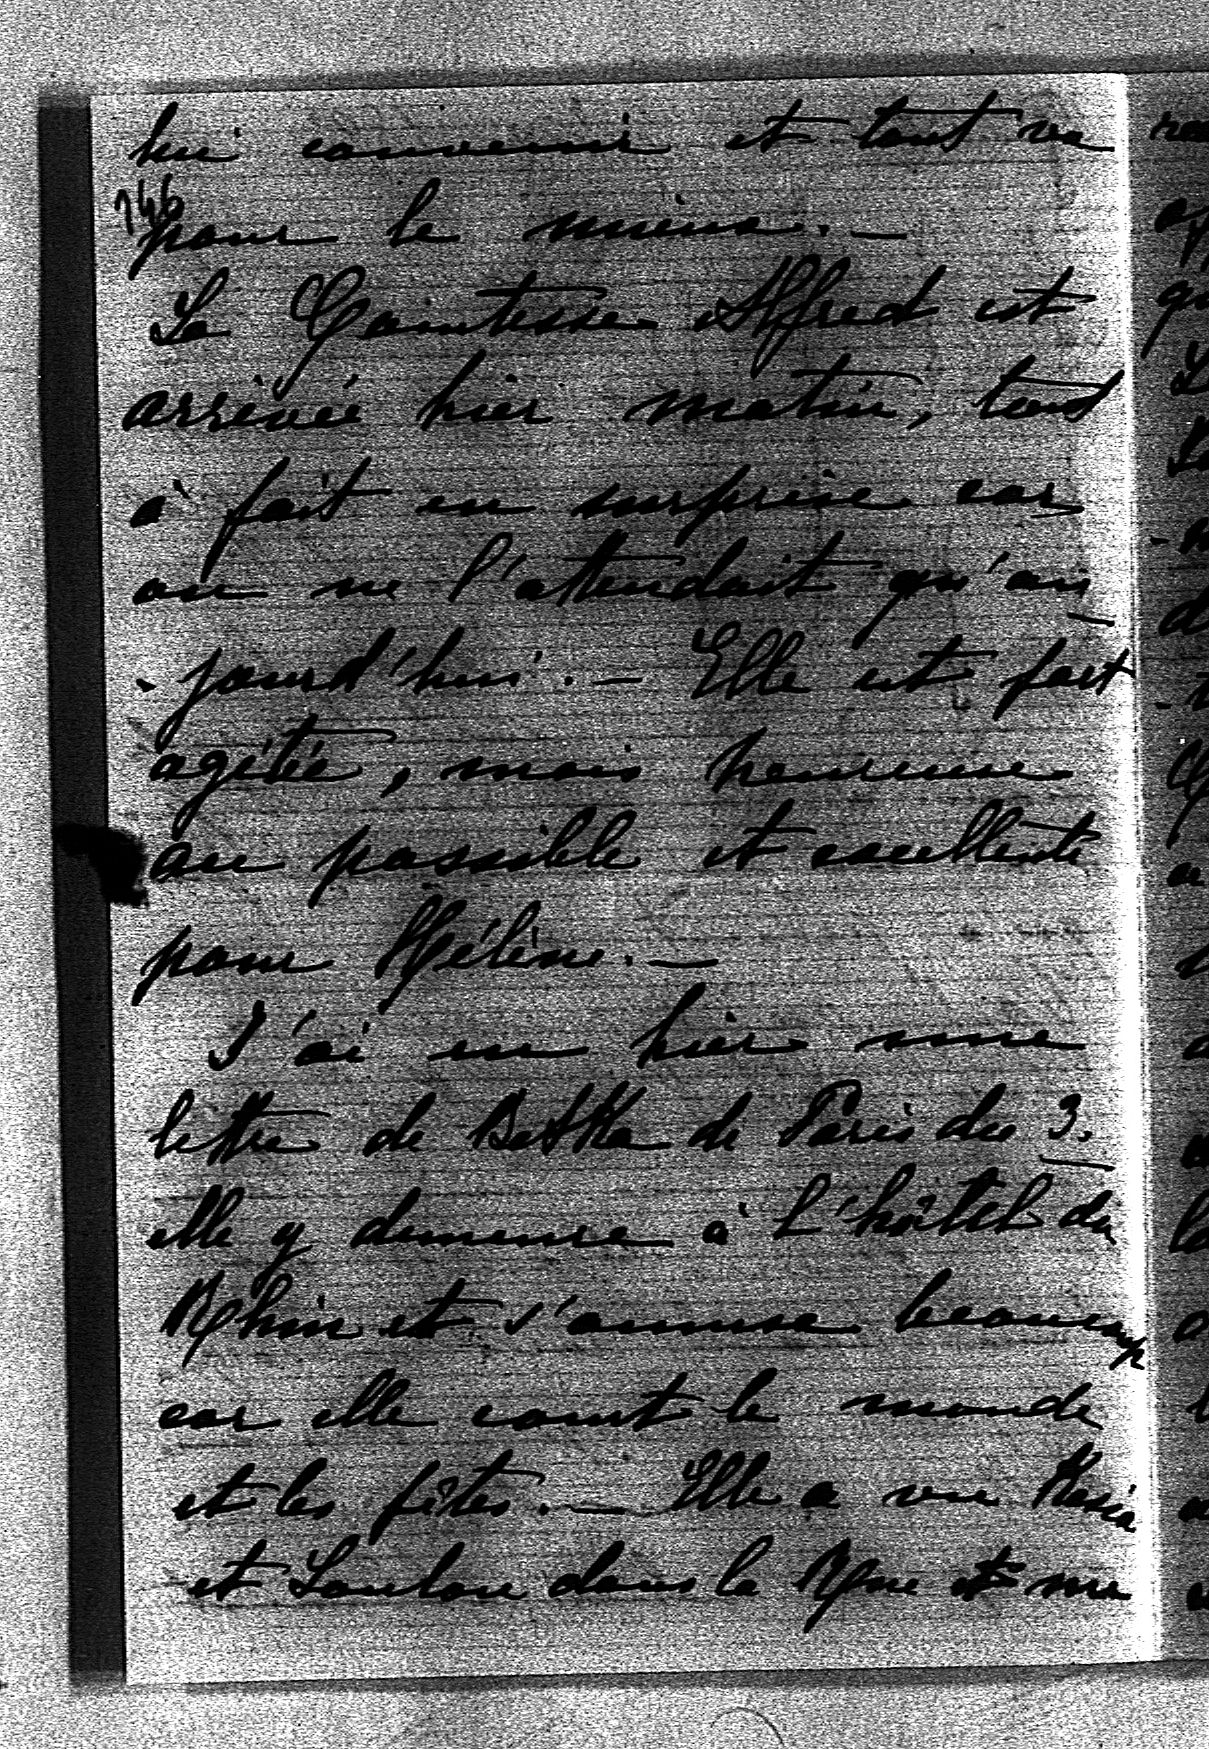 lui convenir et tout va
146
pour le mieux. —
La Comtesse Alfred est
arrivée hier matin, tout
à fait en surprise car
on ne l'attendait qu'au
- jourd'hui. — Elle est fort
agitée, mais heureuse
au possible et excellente
pour Hélène. —
J'ai eu hier une
lettre de Betka de Paris du 3.
elle y demeure à l'hôtel du
Rhin et s'amuse beaucoup
car elle court le monde
et les fêtes. — Elle a vu Kasia
et Loulou dans la Rue et me